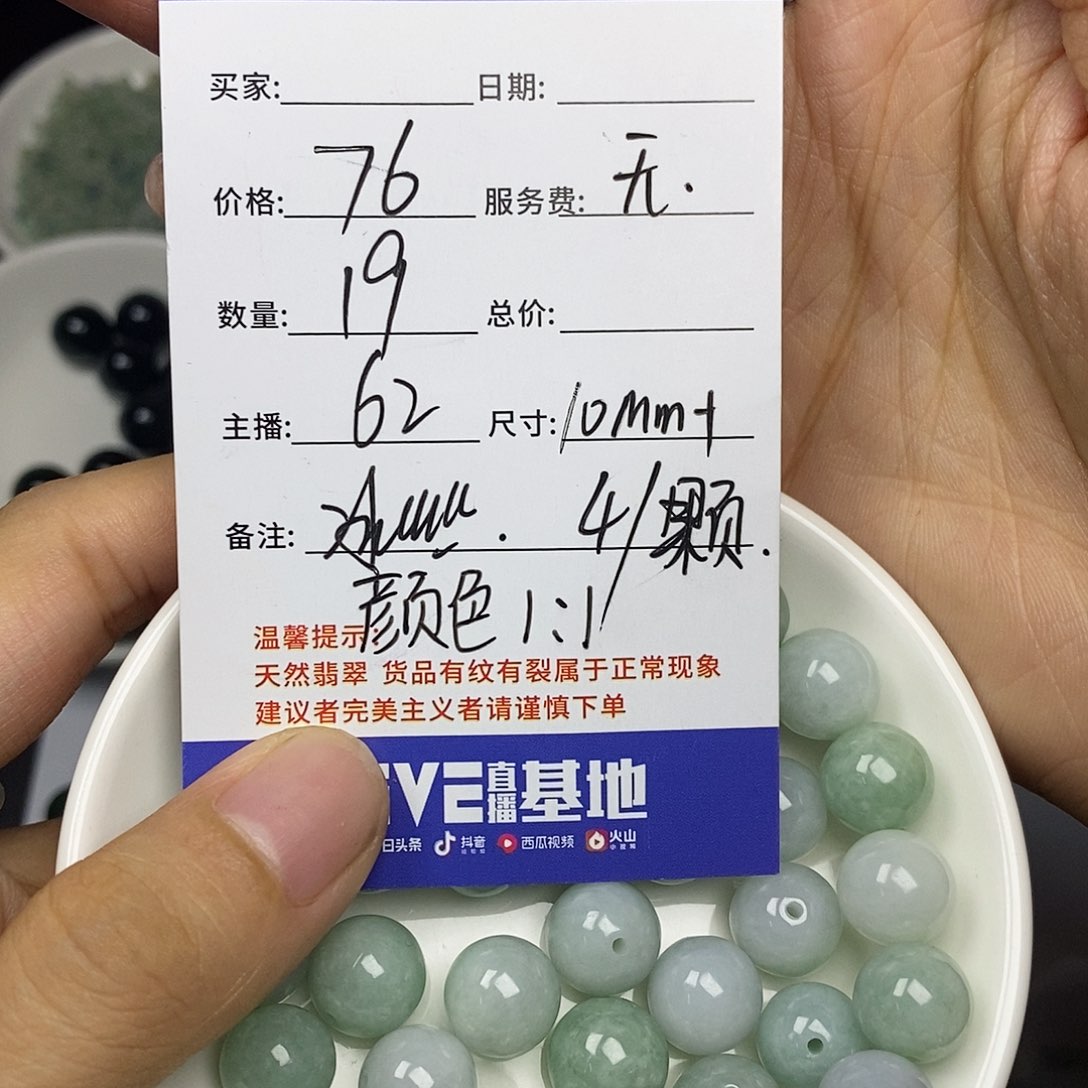 买家: 日期:
价格: 76 服务费: 无.
数量: 19 总价:
主播: 62 尺寸: 10mm+
备注: . 4/颗.
颜色 1:1
温馨提示
天然翡翠 货品有纹有裂属于正常现象
建议者完美主义者请谨慎下单
VE直播基地
日头条 抖音 西瓜视频 火山小视频